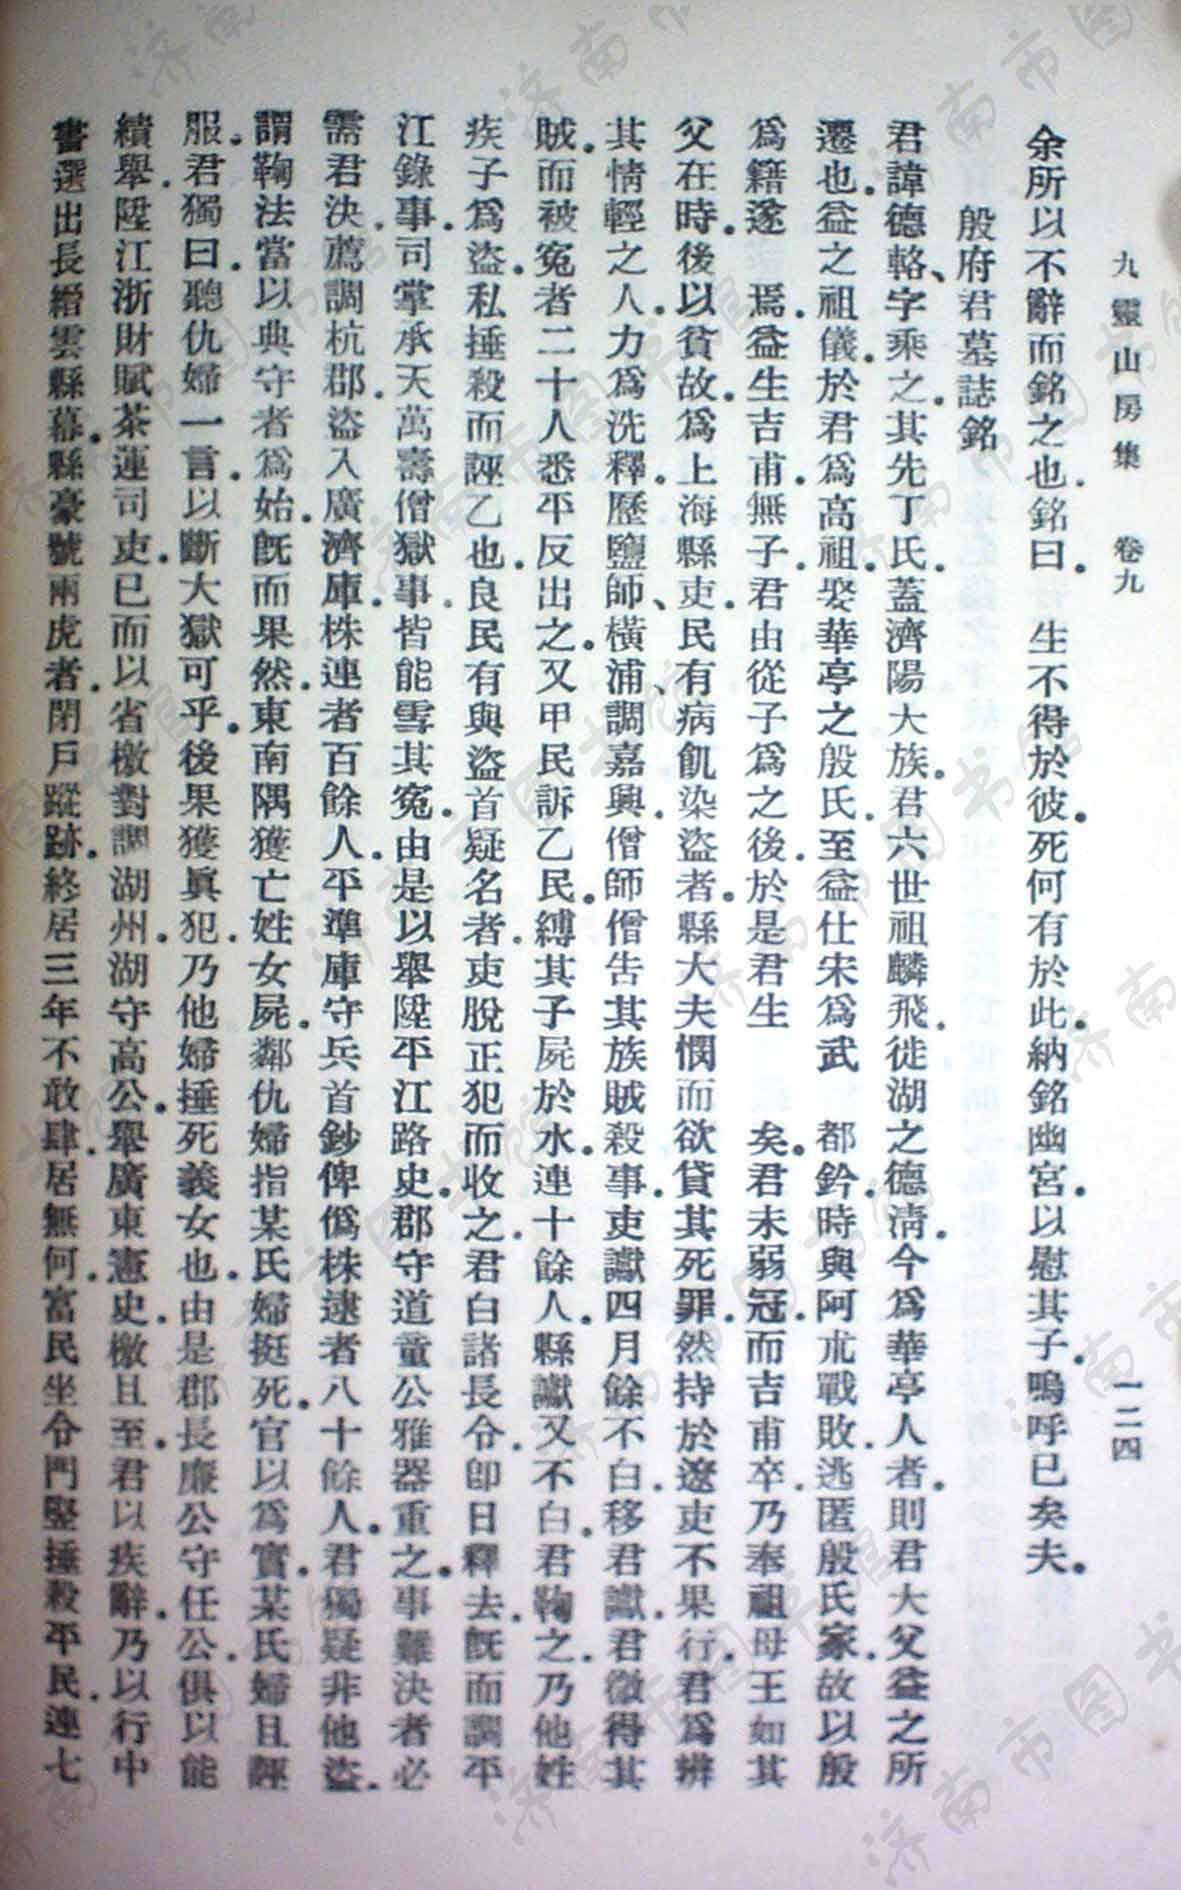 九靈山房集　卷九　一二四
余所以不辭而銘之也銘曰。　生不得於彼。死何有於此。納銘幽宮。以慰其子。嗚呼已矣夫。
殷府君墓誌銘
君諱德輅、字乘之。其先丁氏。蓋濟陽大族。君六世祖麟飛。徙湖之德清。今爲華亭人者。則君大父益之所
遷也。益之祖儀。於君爲高祖。娶華亭之殷氏。至益仕宋爲武　都鈐。時與阿朮戰敗。逃匿殷氏家。故以殷
爲籍。遂　焉。益生吉甫。無子。君由從子爲之後。於是君生　矣。君未弱冠。而吉甫卒。乃奉祖母王如其
父在時。後以貧故。爲上海縣吏。民有病飢染盜者。縣大夫憫而欲貸其死罪。然持於遼吏不果行。君爲辨
其情輕之人。力爲洗釋。歷鹽師、橫浦、調嘉興。僧師僧告其族賊殺事。吏讞四月餘不白。移君讞。君微得其
賊。而被冤者二十人悉平反出之。又甲民訴乙民。縛其子屍於水。連十餘人。縣讞又不白。君鞫之。乃他姓
疾子爲盜。私捶殺而誣乙也。良民有與盜首疑名者。吏脫正犯而收之。君白諸長令。卽日釋去。旣而調平
江錄事。司掌承天萬壽僧獄事。皆能雪其冤。由是以舉陞平江路史。郡守道童公雅器重之。事難決者必
需君決。薦調杭郡。盜入廣濟庫。株連者百餘人。平準庫守兵首鈔俾僞株逮者八十餘人。君獨疑非他盜。
謂鞫法當以典守者爲始。旣而果然。東南隅獲亡姓女屍。鄰仇婦指某氏婦挺死。官以爲實。某氏婦且誣
服。君獨曰。聽仇婦一言。以斷大獄可乎。後果獲眞犯。乃他婦捶死義女也。由是郡長廉公守任公。俱以能
績舉。陞江浙財賦茶運司吏。已而以省檄對調湖州。湖守高公。舉廣東憲史。檄且至。君以疾辭。乃以行中
書選出長縉雲縣幕。縣豪號兩虎者。閉戶蹤跡。終居三年不敢肆。居無何。富民坐令門堅捶殺平民。連七